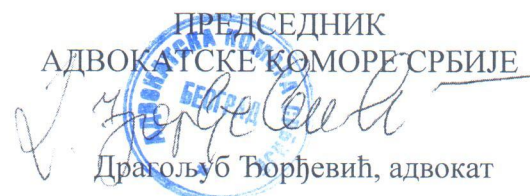 ПРЕДСЕДНИК
АДВОКАТСКЕ КОМОРЕ СРБИЈЕ
АДВОКАТСКА КОМОРА
БЕОГРАД
Драгољуб Ђорђевић, адвокат